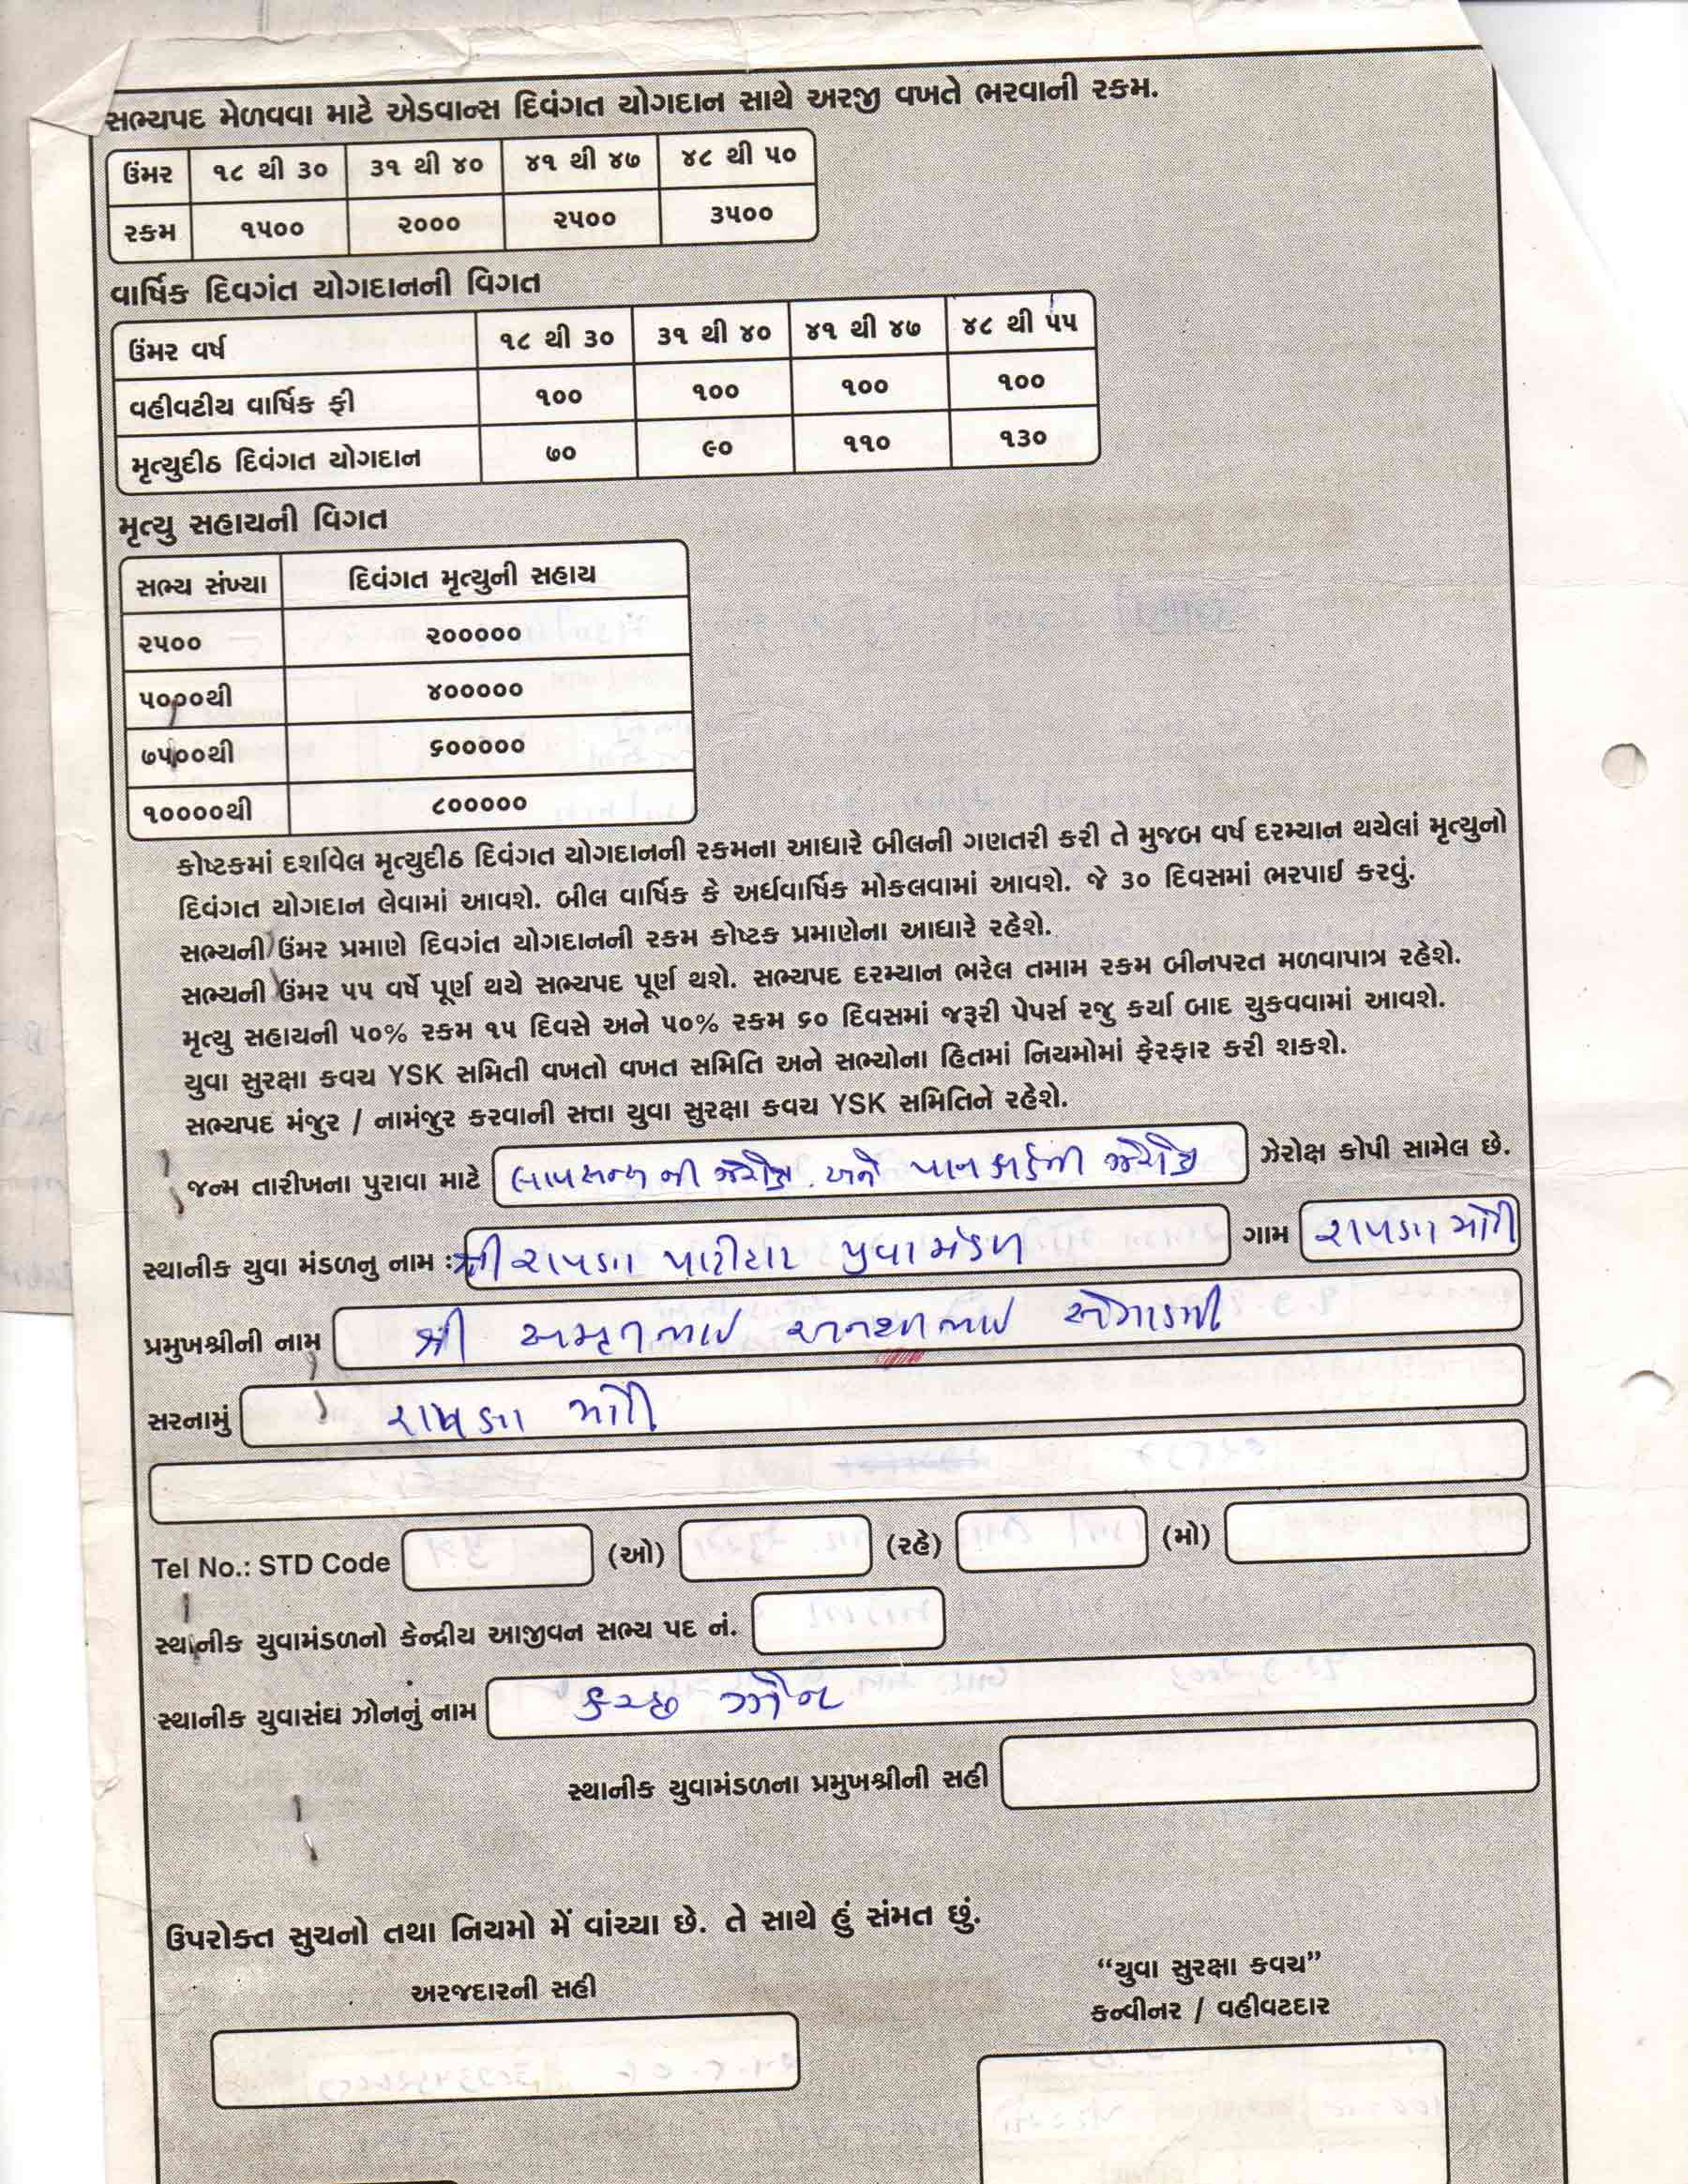 સભ્યપદ મેળવવા માટે એડવાન્સ દિવંગત યોગદાન સાથે અરજી વખતે ભરવાની રકમ.
ઉંમર ૧૮ થી ૩૦ ૩૧ થી ૪૦ ૪૧ થી ૪૭ ૪૮ થી ૫૦
રકમ ૧૫૦૦ ૨૦૦૦ ૨૫૦૦ ૩૫૦૦
વાર્ષિક દિવગંત યોગદાનની વિગત
ઉંમર વર્ષ ૧૮ થી ૩૦ ૩૧ થી ૪૦ ૪૧ થી ૪૭ ૪૮ થી ૫૫
વહીવટીય વાર્ષિક ફી ૧૦૦ ૧૦૦ ૧૦૦ ૧૦૦
મૃત્યુદીઠ દિવંગત યોગદાન ૭૦ ૯૦ ૧૧૦ ૧૩૦
મૃત્યુ સહાયની વિગત
સભ્ય સંખ્યા દિવંગત મૃત્યુની સહાય
૨૫૦૦ ૨૦૦૦૦૦
૫૦૦૦થી ૪૦૦૦૦૦
૭૫૦૦થી ૬૦૦૦૦૦
૧૦૦૦૦થી ૮૦૦૦૦૦
કોષ્ટકમાં દર્શાવેલ મૃત્યુદીઠ દિવંગત યોગદાનની રકમના આધારે બીલની ગણતરી કરી તે મુજબ વર્ષ દરમ્યાન થયેલાં મૃત્યુનો
દિવંગત યોગદાન લેવામાં આવશે. બીલ વાર્ષિક કે અર્ધવાર્ષિક મોકલવામાં આવશે. જે ૩૦ દિવસમાં ભરપાઈ કરવું.
સભ્યની ઉંમર પ્રમાણે દિવગંત યોગદાનની રકમ કોષ્ટક પ્રમાણેના આધારે રહેશે.
સભ્યની ઉંમર ૫૫ વર્ષે પૂર્ણ થયે સભ્યપદ પૂર્ણ થશે. સભ્યપદ દરમ્યાન ભરેલ તમામ રકમ બીનપરત મળવાપાત્ર રહેશે.
મૃત્યુ સહાયની ૫૦% રકમ ૧૫ દિવસે અને ૫૦% રકમ ૬૦ દિવસમાં જરૂરી પેપર્સ રજુ કર્યા બાદ ચુકવવામાં આવશે.
યુવા સુરક્ષા કવચ YSK સમિતી વખતો વખત સમિતિ અને સભ્યોના હિતમાં નિયમોમાં ફેરફાર કરી શકશે.
સભ્યપદ મંજુર / નામંજુર કરવાની સત્તા યુવા સુરક્ષા કવચ YSK સમિતિને રહેશે.
જન્મ તારીખના પુરાવા માટે લાયસન્સ ની ઝેરોક્ષ અને પાન કાર્ડની ઝેરોક્ષ ઝેરોક્ષ કોપી સામેલ છે.
સ્થાનીક યુવા મંડળનુ નામ : શ્રી રાપડા પાટીદાર યુવા મંડળ ગામ રાપડા મોટી
પ્રમુખશ્રીની નામ શ્રી અમૃતભાઈ
સરનામું રાપડા મોટી
Tel No.: STD Code (ઓ) (રહે) (મો)
સ્થાનીક યુવામંડળનો કેન્દ્રીય આજીવન સભ્ય પદ નં.
સ્થાનીક યુવાસંઘ ઝોનનું નામ કચ્છ ઝોન
સ્થાનીક યુવામંડળના પ્રમુખશ્રીની સહી
ઉપરોક્ત સુચનો તથા નિયમો મેં વાંચ્યા છે. તે સાથે હું સંમત છું.
અરજદારની સહી
“યુવા સુરક્ષા કવચ”
કન્વીનર / વહીવટદાર